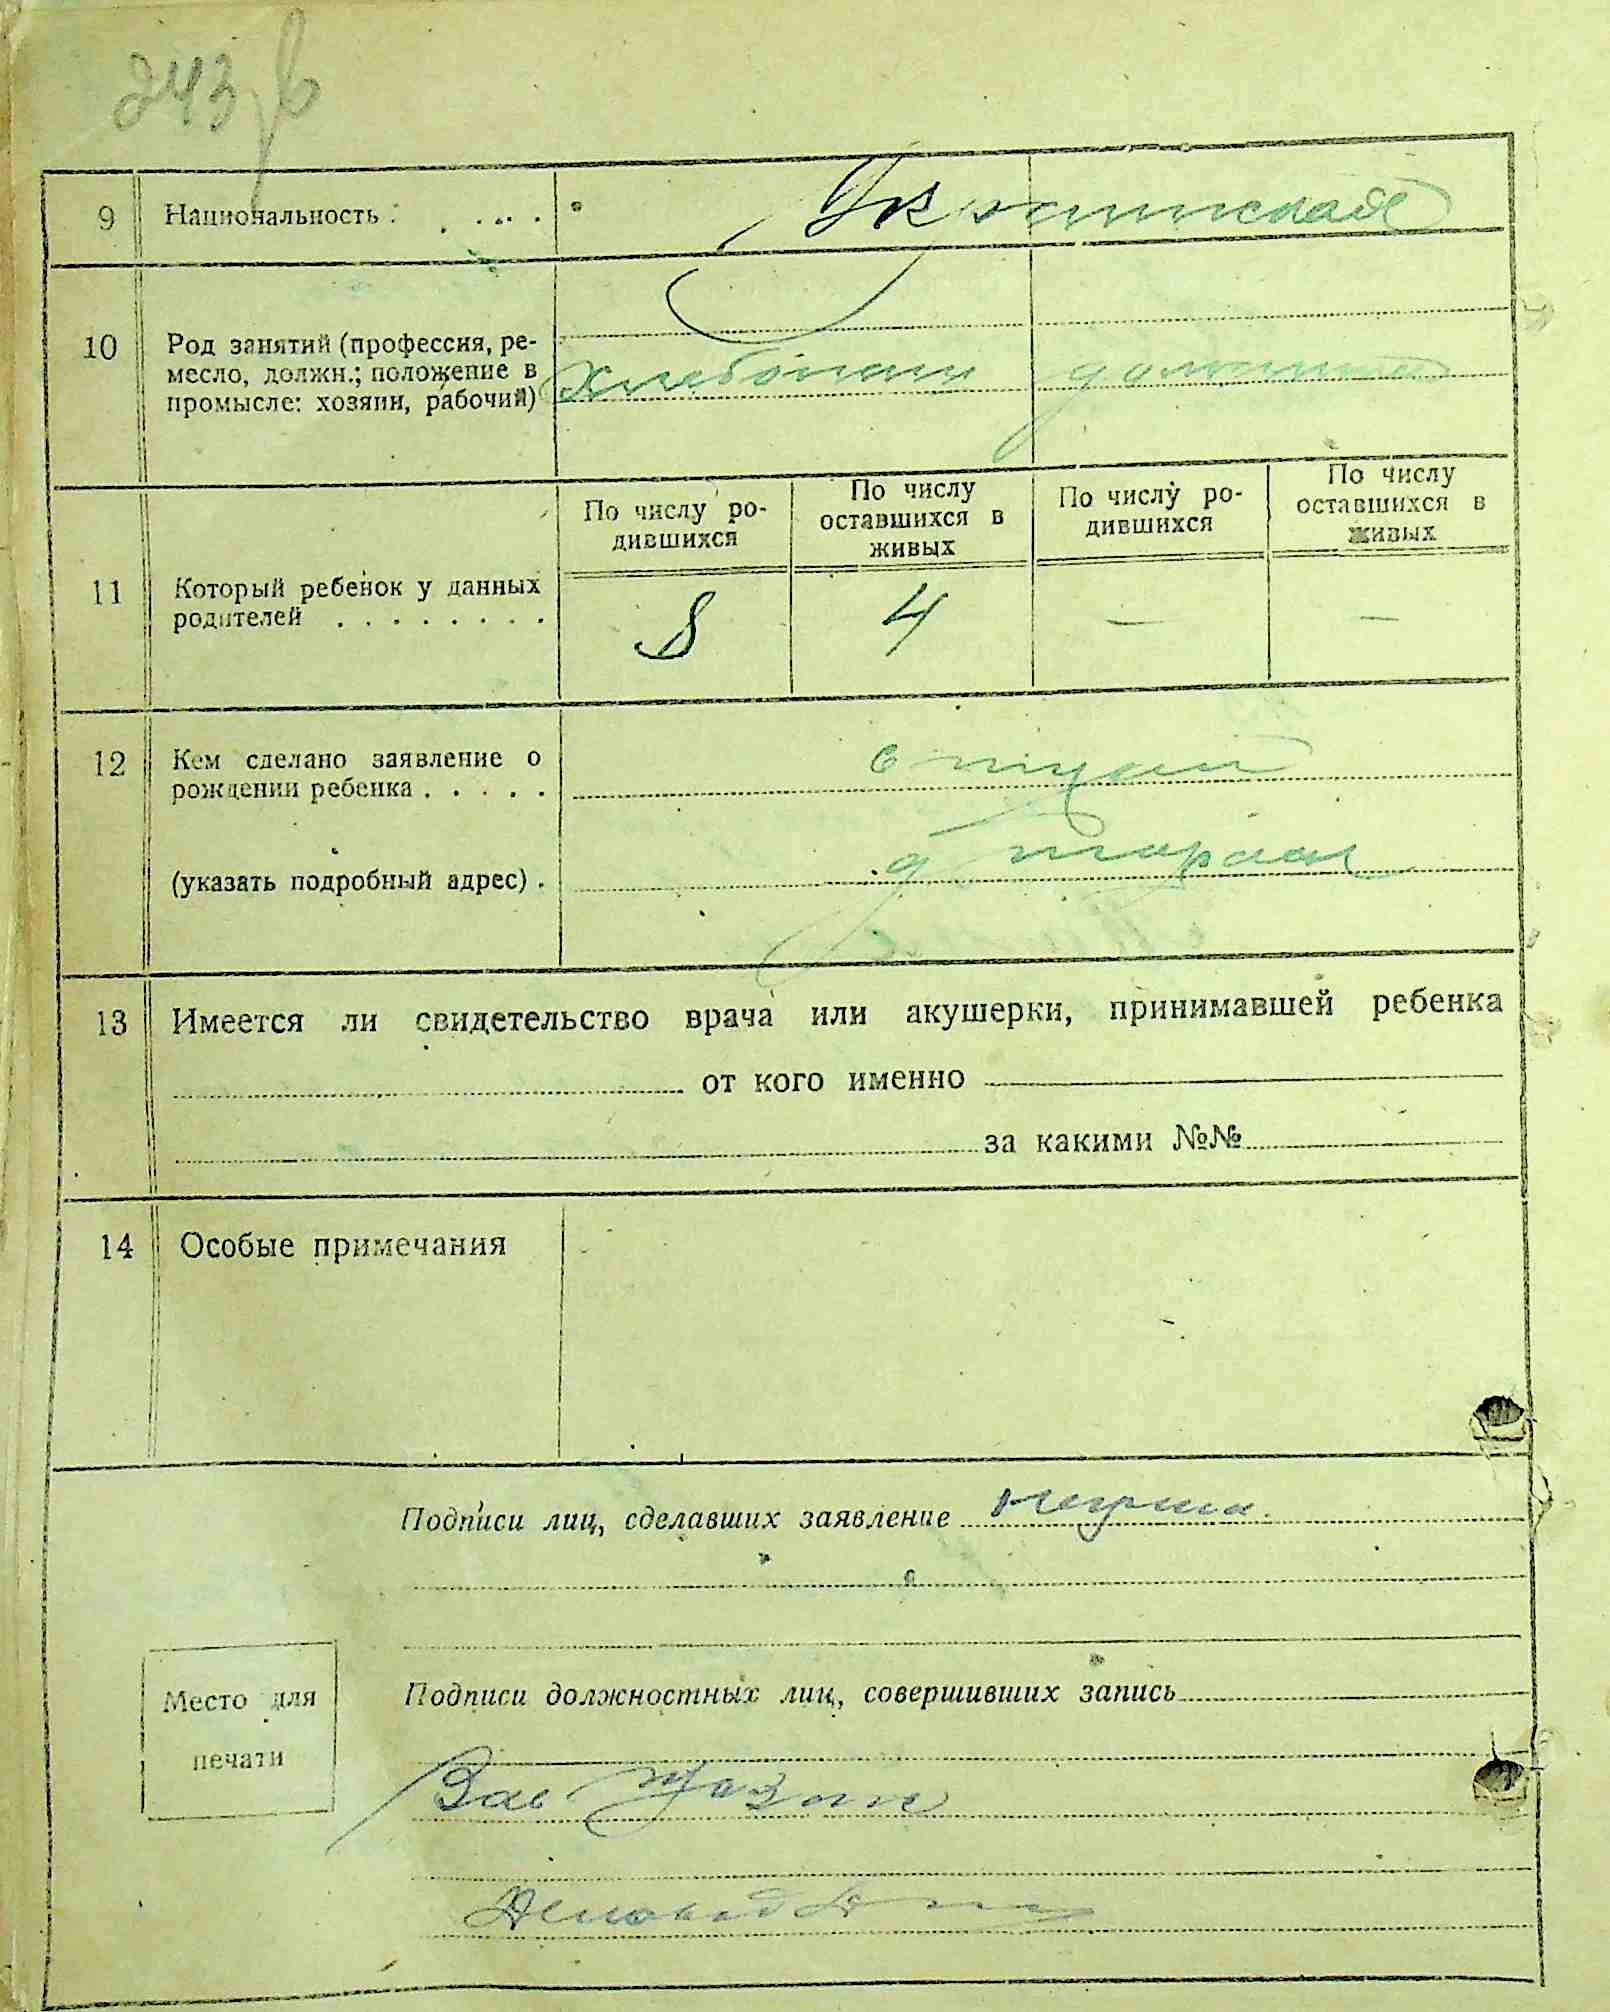 243
9 Национальность . . . . . Украинская
10 Род занятий (профессия, ре-
месло, должн.; положение в
промысле: хозяин, рабочий)
хлебопаш
По числу ро-
дившихся
По числу
оставшихся в
живых
По числу ро-
дившихся
По числу
оставшихся в
живых
11 Который ребенок у данных
родителей . . . . . . . .
8 4 — —
12 Кем сделано заявление о
рождении ребенка . . . . .
(указать подробный адрес) .
13 Имеется ли свидетельство врача или акушерки, принимавшей ребенка
от кого именно
за какими №№
14 Особые примечания
Подписи лиц, сделавших заявление
Место для
печати
Подписи должностных лиц, совершивших запись
Зав
Деловод